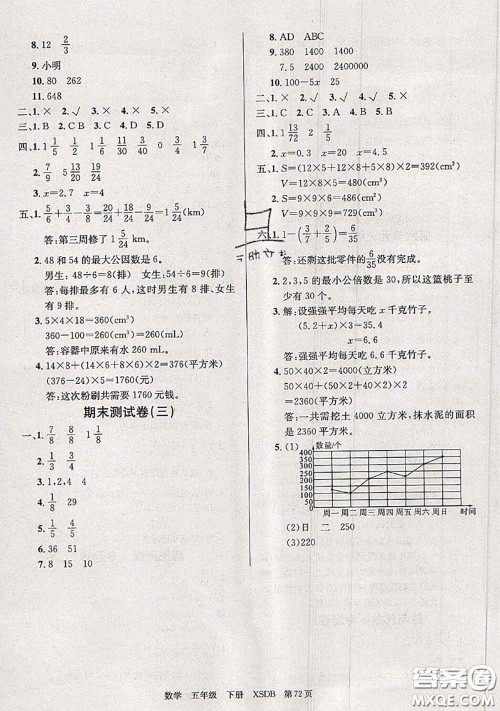 8. 12 2/3
9. 小明
10. 80 262
11. 648
二、1. × 2. √ 3. × 4. × 5. ×
三、1. B 2. C 3. B 4. C 5. D
四、1. 1 1/5 1/2 1 1/10 11/30 1/3 1 3/7
2. 7/9 5 13/20 19/30
3. x=2.7 x=4
五、1. 5/6+3/4-3/8=20/24+18/24-9/24=1 5/24(km)
答:第三周修了 1 5/24 km。
2. 48 和 54 的最大公因数是 6。
男生: 48÷6=8(排) 女生: 54÷6=9(排)
答:每排最多有 6 人，这时男生有 8 排、女生
有 9 排。
3. 5×4×18=360(cm³)
360-100=260(cm³)=260(mL)
答:容器中原来有水 260 mL。
4. 14×8+(14×6+8×6)×2=376(平方米)
(376-24)×5=1760(元)
答:这次粉刷共需要 1760 元钱。
期末测试卷(三)
一、1. 7/8 8/8 1 1/8
2. 4/9 4/9
3. 1,2,4 4
4. 1/4 28
5. 4/5 4/5
6. 36 51
7. 8 15 10
8. AD ABC
9. 380 1400 1400
7.5 2400 2400000
10. 100-5x 25
二、1. × 2. √ 3. × 4. √ 5. ×
三、1. D 2. B 3. B 4. A 5. C
四、1. 1 13/72 2 1/5
2. x=0.5 x=4.5 x=20
五、1. S=(12×5+12×8+5×8)×2=392(cm²)
V=12×8×5=480(cm³)
2. S=9×9×6=486(cm²)
V=9×9×9=729(cm³)
六、1. 1-(3/7+2/5)=6/35
答:还剩这批零件的6/35没有完成。
2. 2,3,5 的最小公倍数是 30，所以这篮桃子至
少有 30 个。
3. 解:设强强平均每天吃 x 千克竹子。
(5.2+x)×3=35.4
x=6.6
答:强强平均每天吃 6.6 千克竹子。
4. 50×40×2=4000(立方米)
50×40+(50×2+40×2)×2
=2360(平方米)
答:一共需挖土 4000 立方米，抹水泥的面积
是 2360 平方米。
5. (1) 数量/个
400
350
300
250
200
150
100
50
0
周一 周二 周三 周四 周五 周六 周日 时间
(2)日 二 250
(3)220
数学 五年级 下册 XSDB 第72页